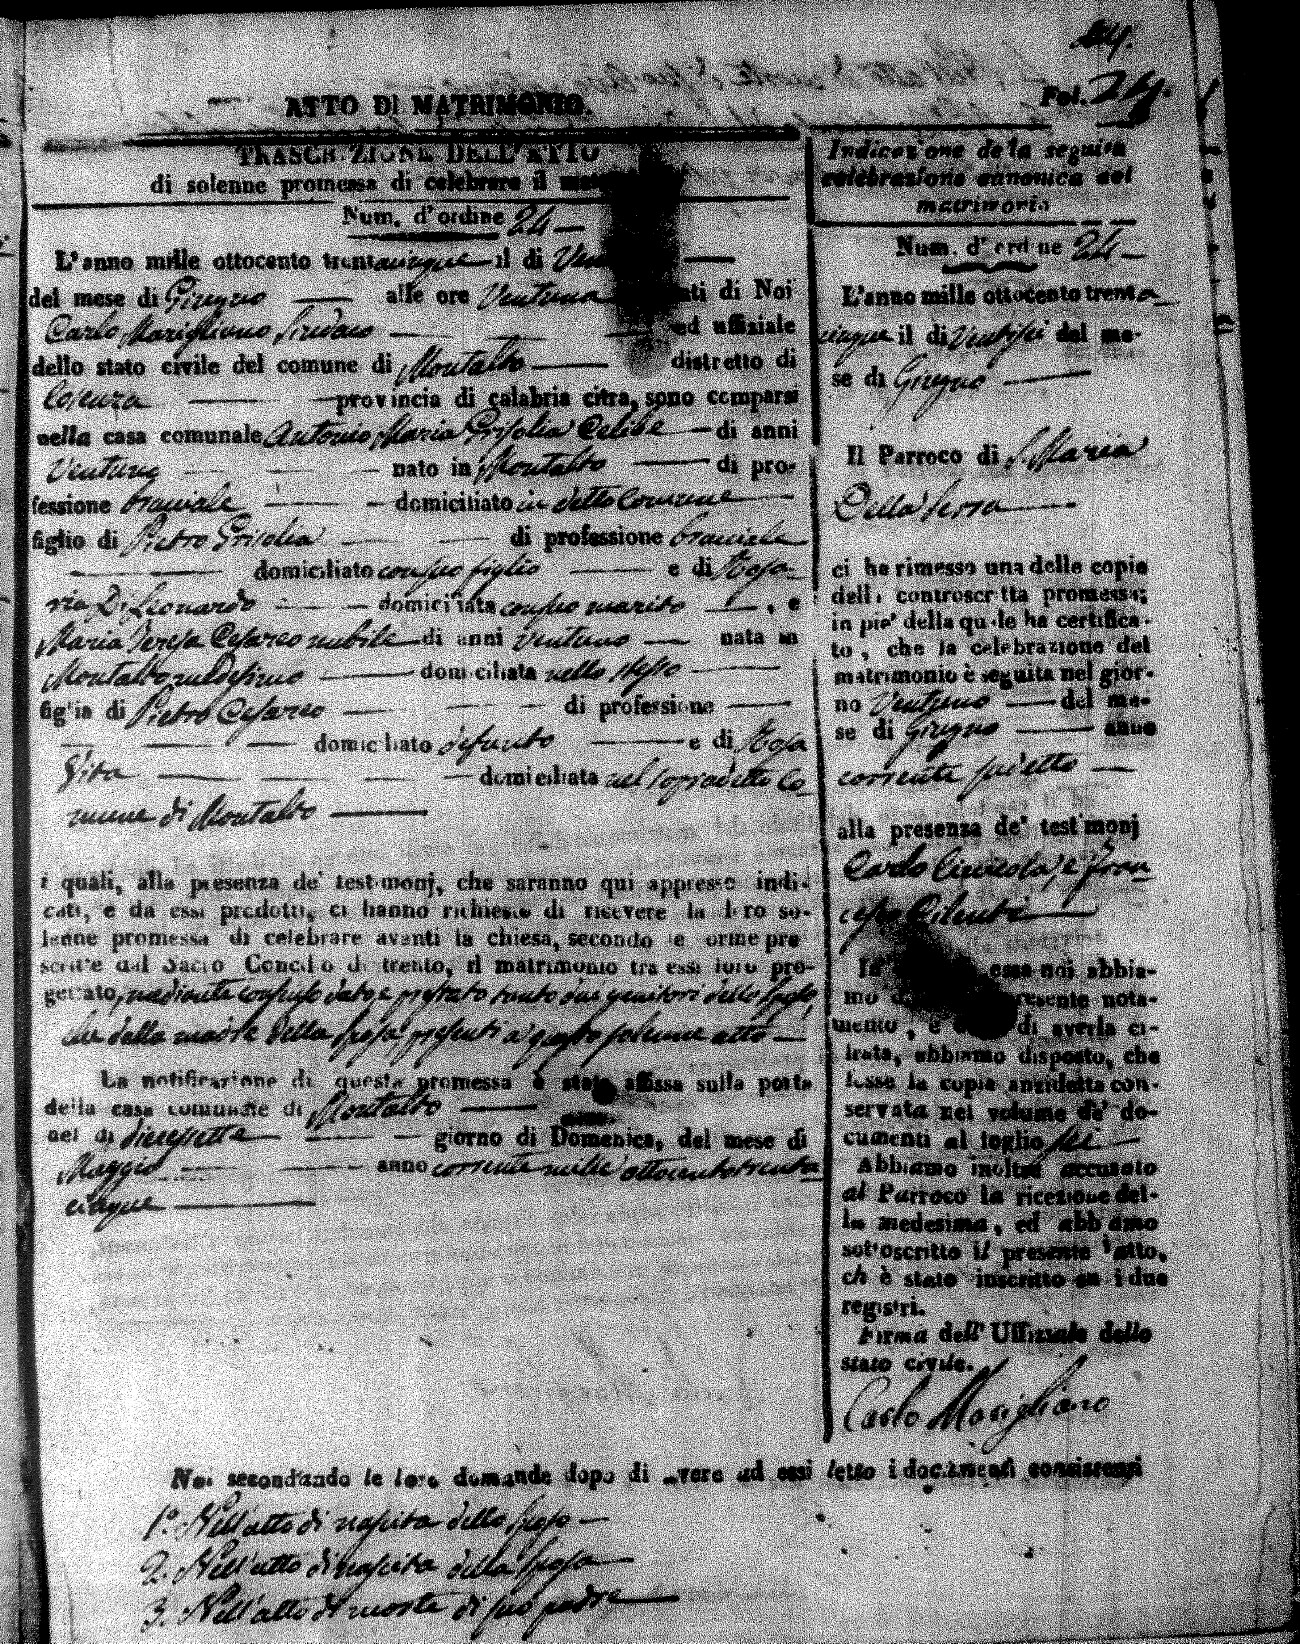 24.
Fol. 24.
ATTO DI MATRIMONIO.
TRASCRIZIONE DELL'ATTO
di solenne promessa di celebrare il
Num. d'ordine 24
L'anno mille ottocento trentacinque il di
del mese di Giugno alle ore Ventuna di Noi
Carlo Marigliano Sindaco ed uffiziale
dello stato civile del comune di Montalto distretto di
Cosenza provincia di calabria citra, sono comparsi
nella casa comunale Antonio Maria Grisolia Celibe di anni
Ventuno nato in Montalto di pro-
fessione bracciale domiciliato in detto Comune
figlio di Pietro Grisolia di professione bracciale
domiciliato con suo figlio e di Rosa-
ria Di Leonardo domiciliata con suo marito , e
Maria Teresa Cesareo nubile di anni Ventuno nata in
Montalto medesimo domiciliata nello stesso
figlia di Pietro Cesareo di professione
domiciliato defunto e di Rosa
Vita domiciliata nel sopradetto Co-
mune di Montalto
i quali, alla presenza de' testimonj, che saranno qui appresso indi-
cati, e da essi prodotti, ci hanno richiesto di ricevere la loro so-
lenne promessa di celebrare avanti la chiesa, secondo le orme pre
scritte dal Sacro Concilio di trento, il matrimonio tra essi loro pro-
gettato, mediante consenso dato e prestato tanto dai genitori dello sposo,
che dalla madre della sposa presenti a questo solenne atto
La notificazione di questa promessa è stata affissa sulla porta
della casa comunale di Montalto
nel di diecisette giorno di Domenica, del mese di
Maggio anno corrente mille ottocento trenta
cinque
Indicazione della seguita
celebrazione canonica del
matrimonio
Num. d'ordine 24
L'anno mille ottocento trenta
cinque il di del me-
se di Giugno
Il Parroco di S. Maria
Della Serra
ci ha rimesso una delle copie
della controscritta promessa;
in pie' della quale ha certifica-
to, che la celebrazione del
matrimonio è seguita nel gior-
no Ventuno del me-
se di Giugno anno
corrente sudetto
alla presenza de' testimonj
Carlo e Fran
cesco Cilenti
essa noi abbia-
mo presente nota-
mento, e di averla ci-
frata, abbiamo disposto, che
fosse la copia anzidetta con-
servata nel volume de' do-
cumenti al foglio
Abbiamo inoltre accusato
al Parroco la ricezione del-
la medesima, ed abbiamo
sottoscritto il presente atto,
ch è stato inscritto su i due
registri.
Firma dell' Uffiziale dello
stato civile.
Carlo Marigliano
Noi secondando le loro domande dopo di avere ad essi letto i documenti consistenti
1.° Nell'atto di nascita dello sposo
2. Nell'atto di nascita della sposa
3. Nell'atto di morte di suo padre